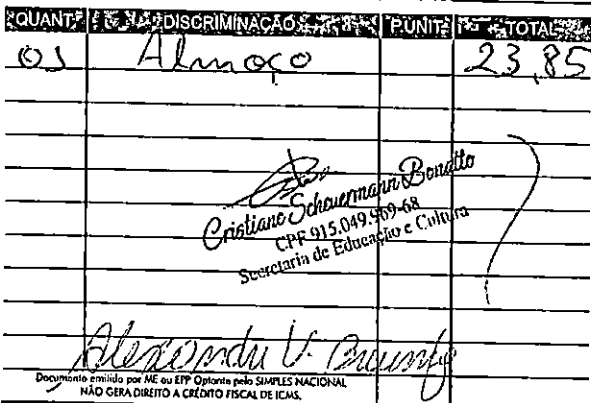 QUANT. DISCRIMINAÇÃO P. UNIT. TOTAL
01 Almoço 23,85
Cristiane Scheuermann Bonatto
CPF 915.049.969-68
Secretaria de Educação e Cultura
Documento emitido por ME ou EPP Optante pelo SIMPLES NACIONAL
NÃO GERA DIREITO A CRÉDITO FISCAL DE ICMS.